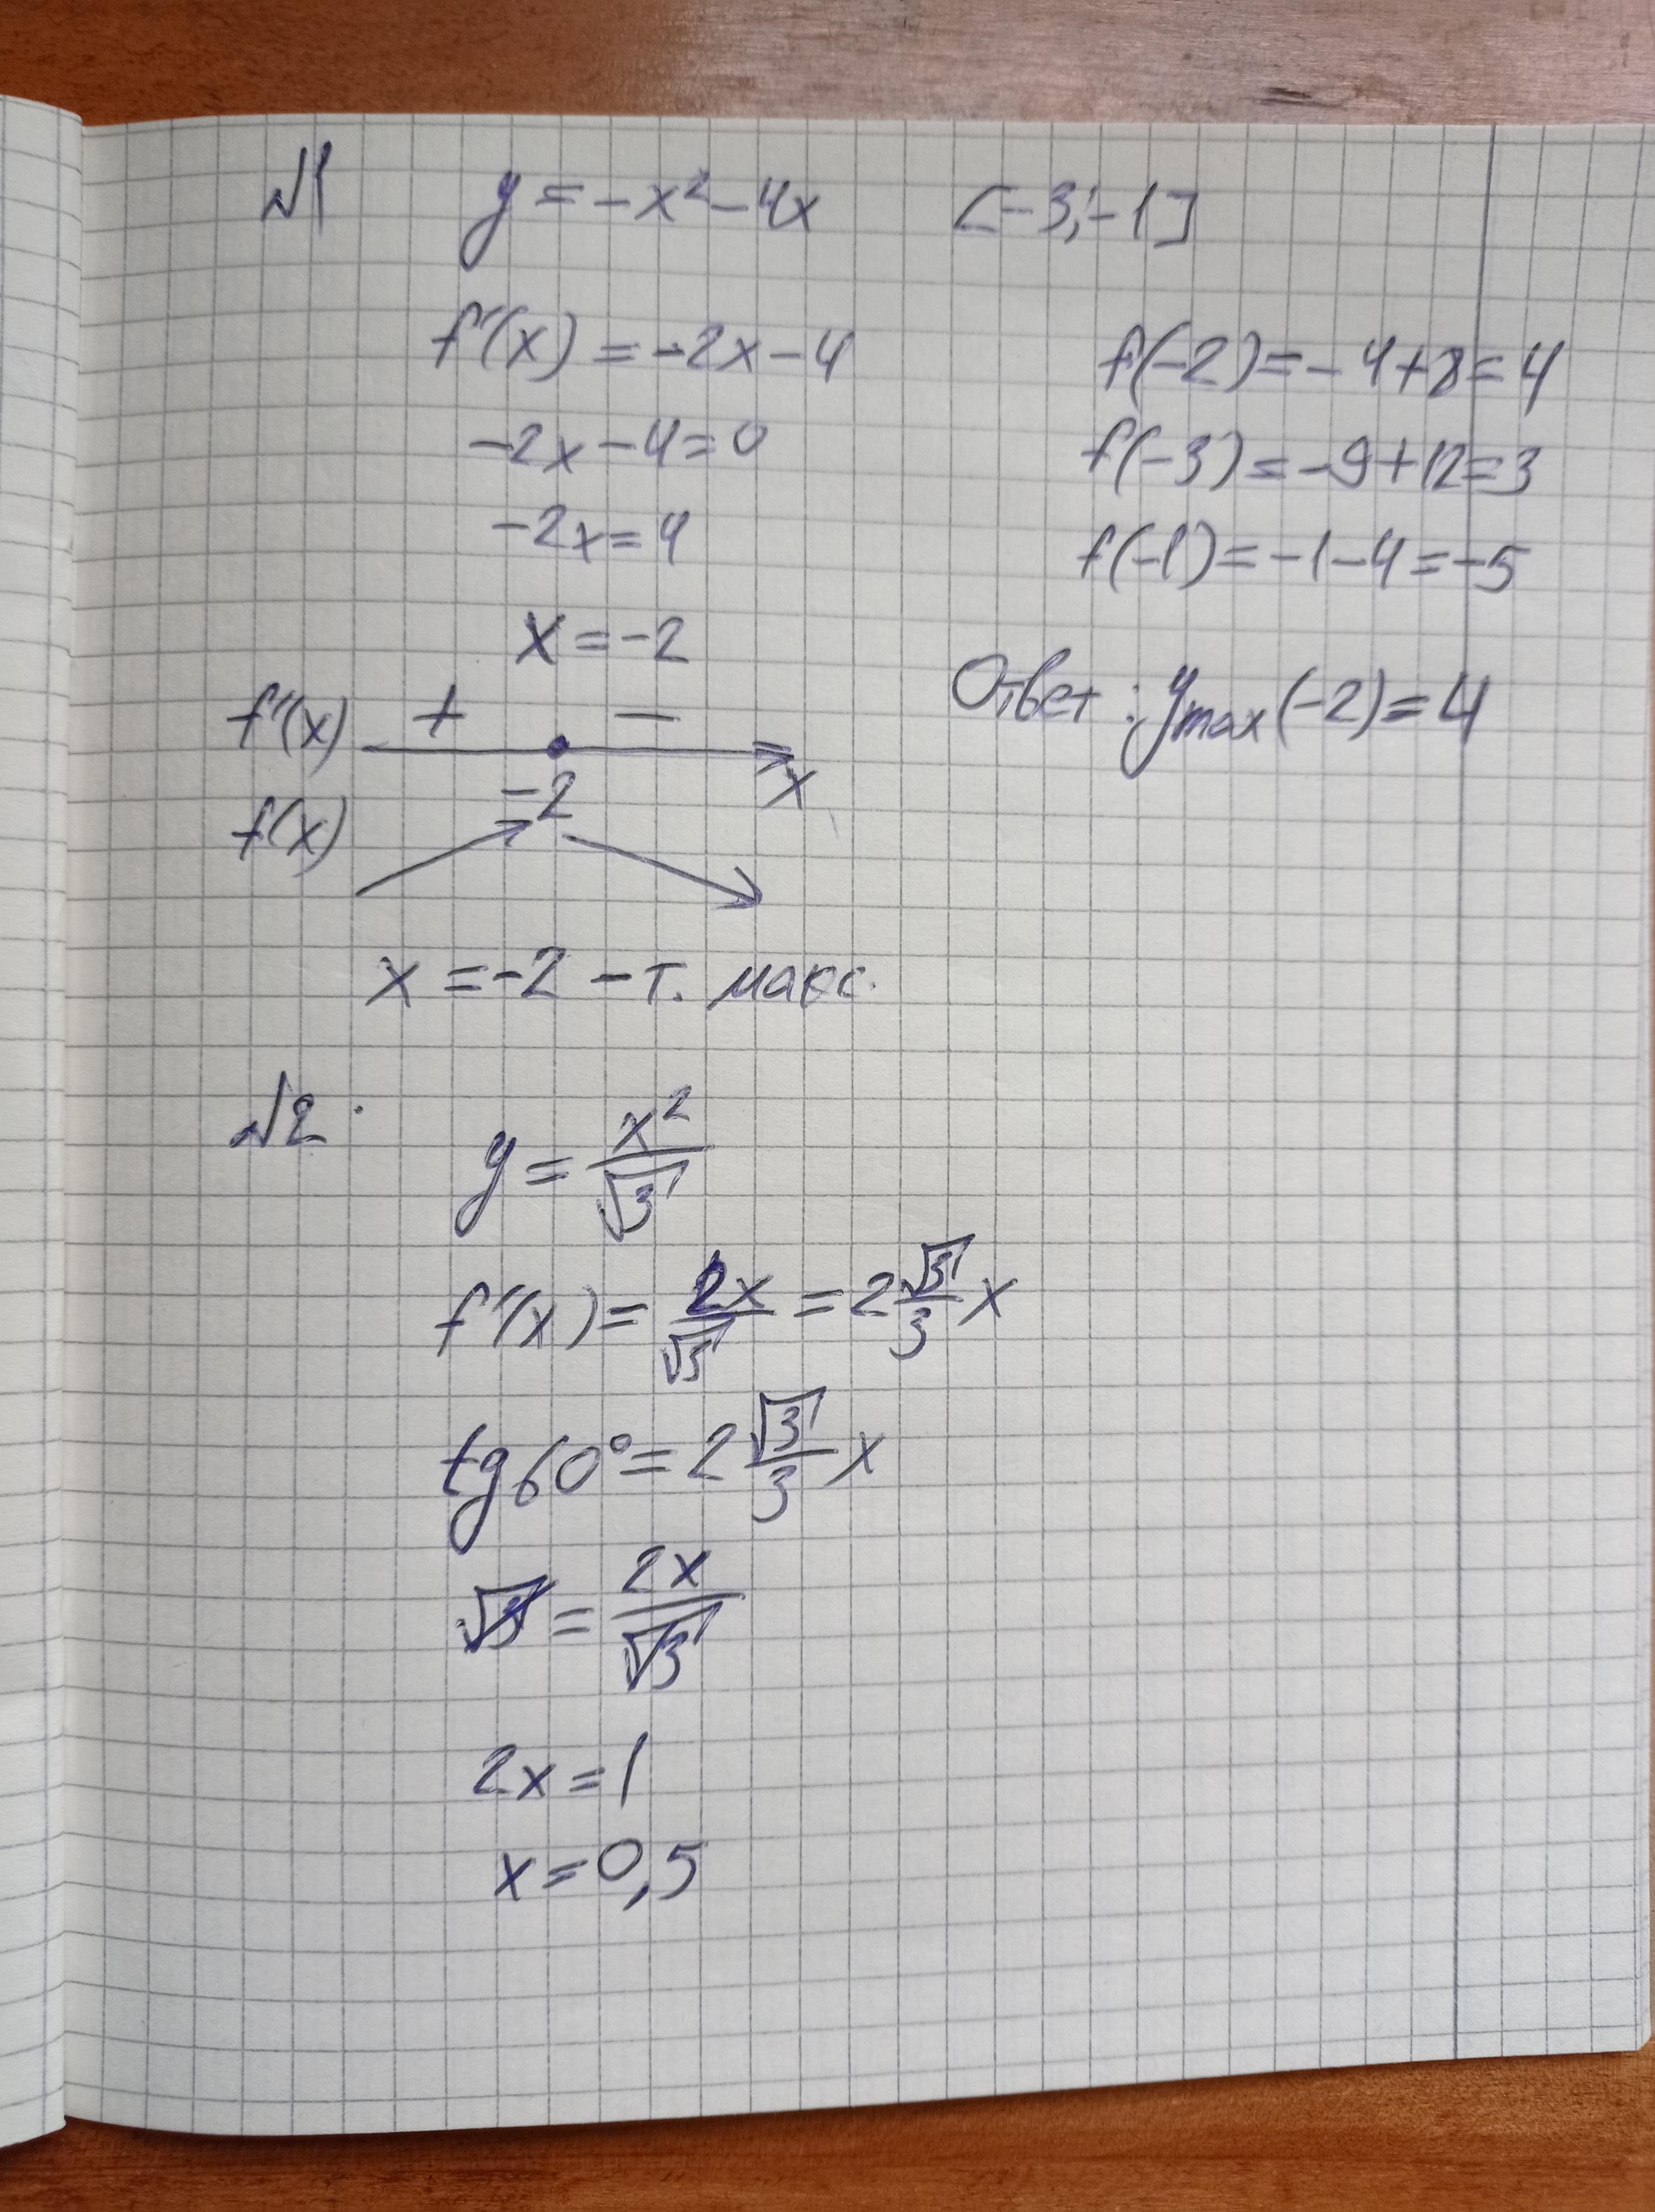 №1 y = -x² - 4x [-3; -1]
f'(x) = -2x - 4
-2x - 4 = 0
-2x = 4
x = -2
f'(x) + -
-2 x
f(x)
x = -2 - т. макс.
f(-2) = -4 + 8 = 4
f(-3) = -9 + 12 = 3
f(-1) = -1 - 4 = -5
Ответ: y_max(-2) = 4
№2.
y = x²/√3
f'(x) = 2x/√3 = 2 √3/3 x
tg 60° = 2 √3/3 x
√3 = 2x/√3
2x = 1
x = 0,5